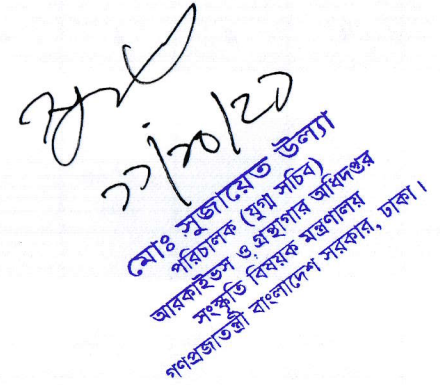 মোঃ সুজায়েত উল্যা
পরিচালক (যুগ্ম সচিব)
আরকাইভস ও গ্রন্থাগার অধিদপ্তর
সংস্কৃতি বিষয়ক মন্ত্রণালয়
গণপ্রজাতন্ত্রী বাংলাদেশ সরকার, ঢাকা।